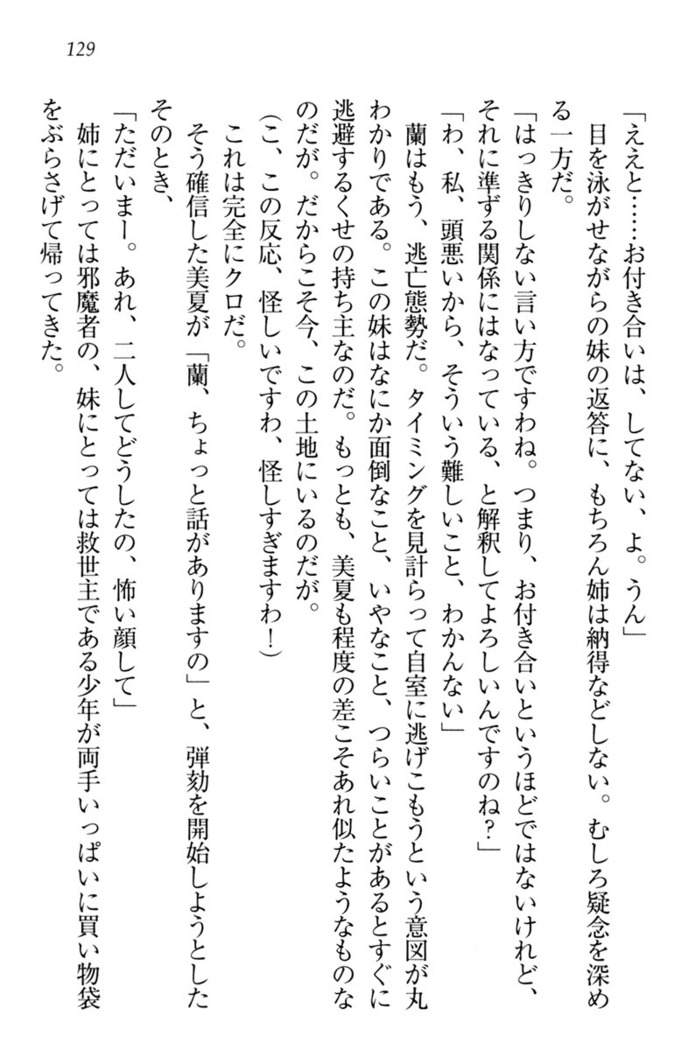 129
「ええと……お付き合いは、してない、よ。うん」
目を泳がせながらの妹の返答に、もちろん姉は納得などしない。むしろ疑念を深め
る一方だ。
「はっきりしない言い方ですわね。つまり、お付き合いというほどではないけれど、
それに準ずる関係にはなっている、と解釈してよろしいんですのね？」
「わ、私、頭悪いから、そういう難しいこと、わかんない」
蘭はもう、逃亡態勢だ。タイミングを見計らって自室に逃げこもうという意図が丸
わかりである。この妹はなにか面倒なこと、いやなこと、つらいことがあるとすぐに
逃避するくせの持ち主なのだ。もっとも、美夏も程度の差こそあれ似たようなものな
のだが。だからこそ今、この土地にいるのだが。
（こ、この反応、怪しいですわ、怪しすぎますわ！）
これは完全にクロだ。
そう確信した美夏が「蘭、ちょっと話がありますの」と、弾劾を開始しようとした
そのとき、
「ただいまー。あれ、二人してどうしたの、怖い顔して」
姉にとっては邪魔者の、妹にとっては救世主である少年が両手いっぱいに買い物袋
をぶらさげて帰ってきた。